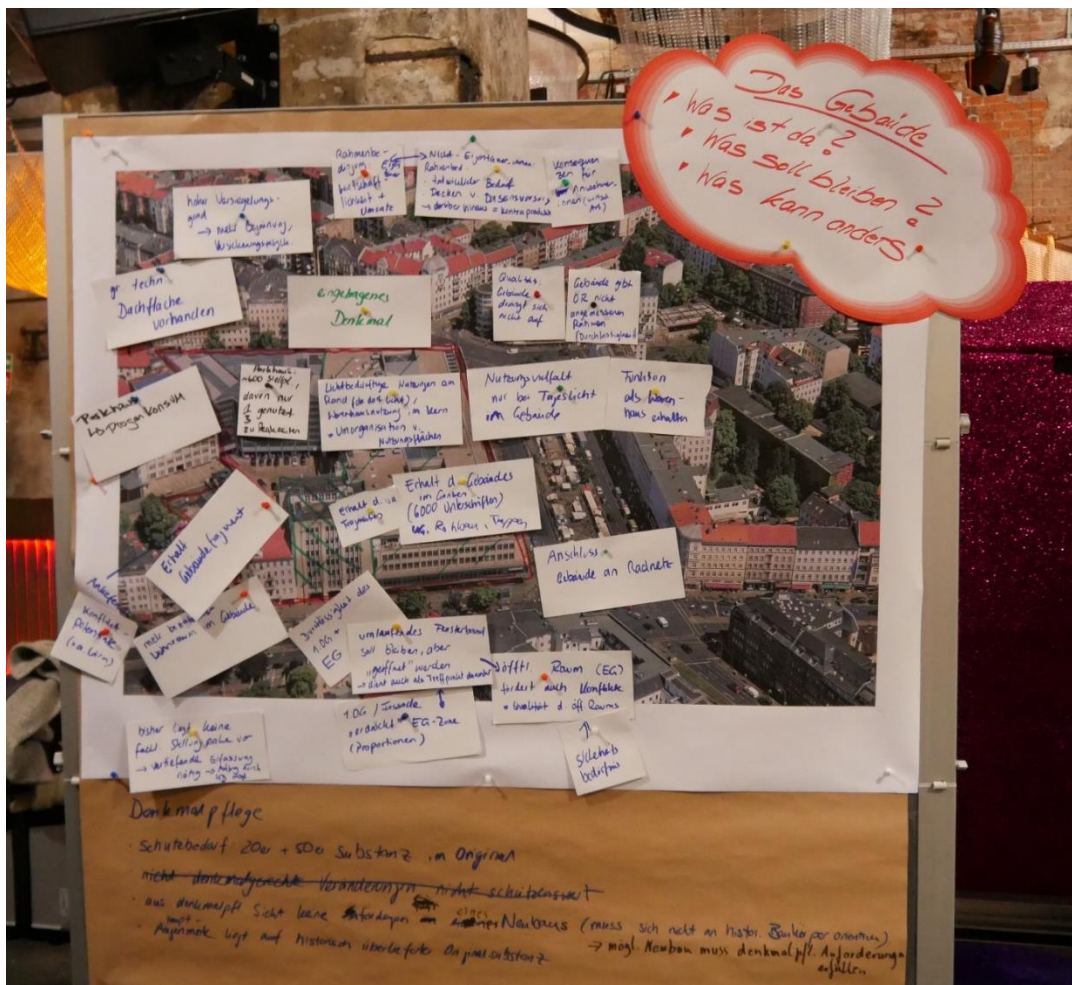 Das Gebäude
• Was ist da?
• Was soll bleiben?
• Was kann anders?
Rahmenbe-
dingung:
wirtschaft-
lichkeit +
Umsatz
Nicht-Eigentümer:innen
Bedarf
Decken v. Daseinsvorsorg
→ darüber hinaus = kontraprodukt
Konsequen
zen für
Anwohner-
innen
hoher Versiegelungs-
grad
→ mehr Begrünung,
Versickerungsmöglk.
gr. techn.
Dachfläche
vorhanden
eingetragenes
Denkmal
Qualität:
Gebäude
drängt sich
nicht auf
Gebäude gibt
ÖR nicht
angemessenen
Rahmen
(Durchlässigkeit)
Parkhaus
→ Drogenkonsum
Parkhaus:
~600 Stellpl.,
davon nur
1
3 genutzt
zu
Lichtbedürftige Nutzungen am
Rand
Warenhausnutzung im Kern
Nutzungsflächen
Nutzungsvielfalt
nur bei Tageslicht
im Gebäude
Funktion
als Waren-
haus erhalten
Erhalt
Gebäudefragment
Erhalt d.
Erhalt d. Gebäudes
im Ganzen
(6000 Unterschriften)
Rolltreppen, Treppen
Anschluss
Gebäude an Radnetz
Konflikt-
potenziale
(u.a. Lärm)
mehr
Wohnraum im Gebäude
Durchlässigkeit des
1.OG +
EG
umlaufendes Fensterband
soll bleiben, aber
"geöffnet" werden
→ dient auch als Treffpunkt darunter
öfftl. Raum (EG)
fördert auch Konflikte
• Qualität d. öff Raums
1.OG / Fassade
erdrückt EG-Zone
(Proportionen)
Sicherheits
bedürfnis
bisher liegt keine
fachl. Stellungnahme vor
→ vertiefende Erfassung
nötig →
Denkmalpflege
• Schutzbedarf 20er + 50er Substanz im Original
• nicht denkmalgerechte Veränderungen nicht schützenswert
• aus denkmalpfl. Sicht keine eines Neubaus (muss sich nicht an histor. Baukörper orientieren)
→ mögl. Neubau muss denkmalpfl. Anforderungen
erfüllen
• Haupt-
Augenmerk liegt auf historisch überlieferter Originalsubstanz